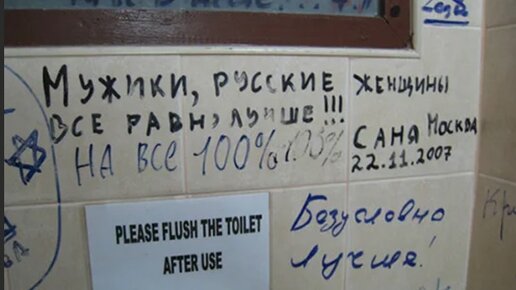 МУЖИКИ, РУССКИЕ ЖЕНЩИНЫ
ВСЕ РАВНО ЛУЧШЕ!!!
НА ВСЕ 100%
САНЯ МОСКВА
22.11.2007
PLEASE FLUSH THE TOILET
AFTER USE
Безусловно
лучшие!